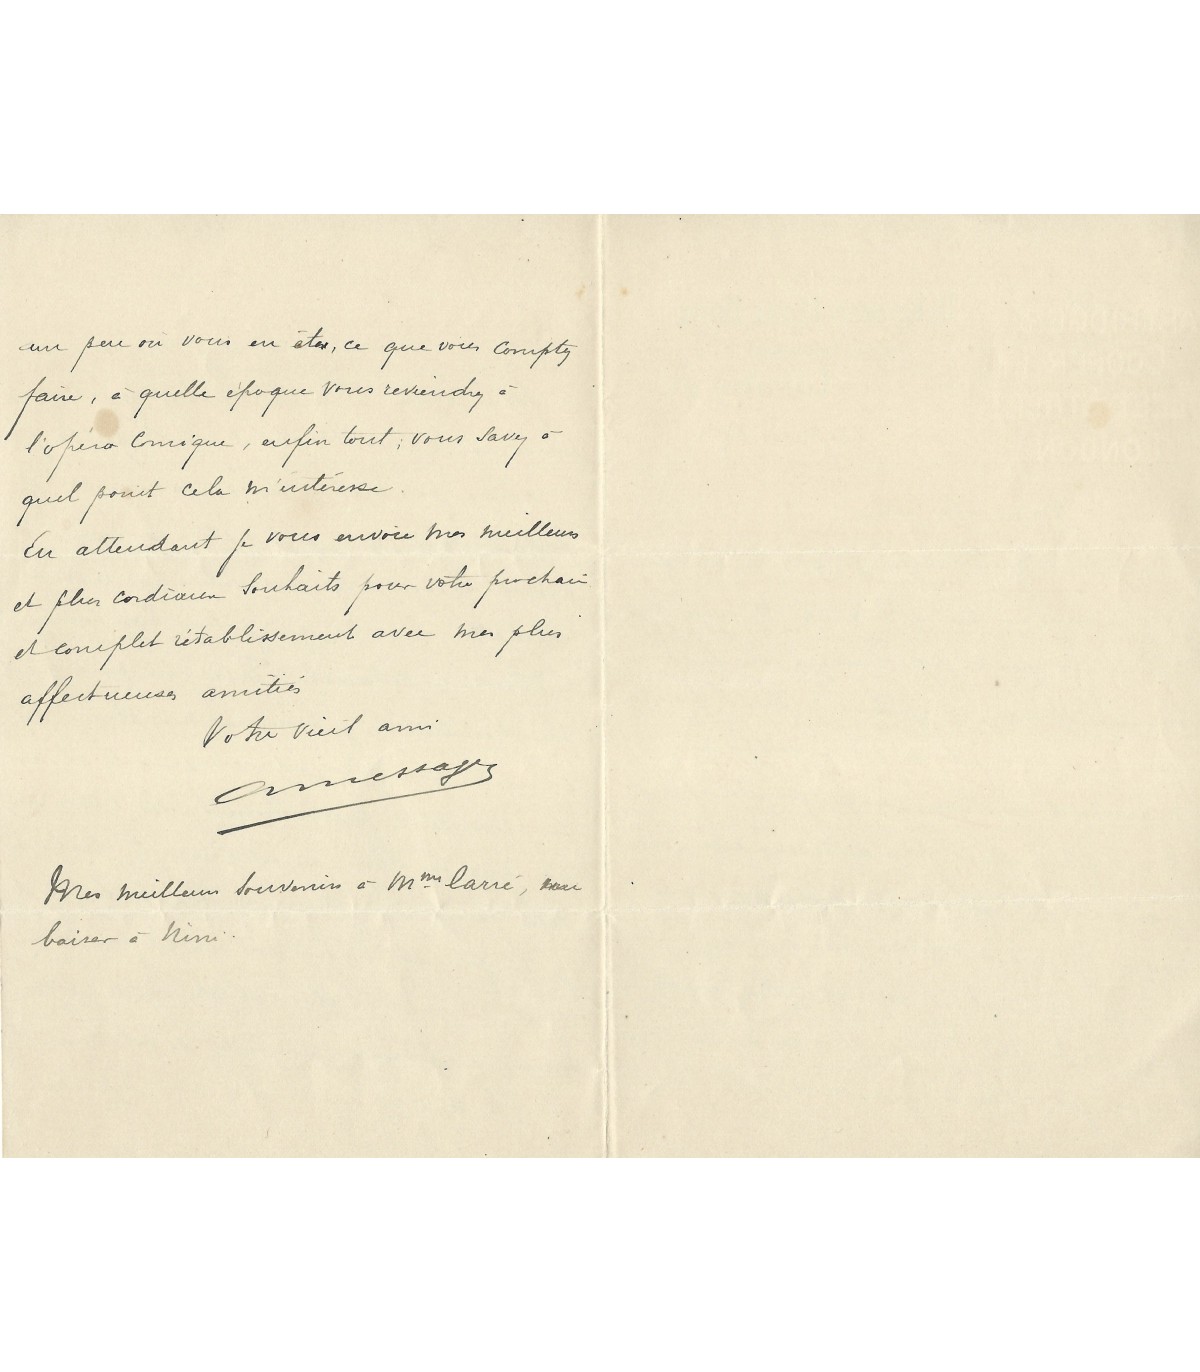 un peu où vous en êtes, ce que vous comptez
faire, à quelle époque vous reviendrez à
l'opéra Comique, enfin tout; vous savez à
quel point cela m'intéresse.
En attendant je vous envoie mes meilleurs
et plus cordiaux souhaits pour votre prochain
et complet rétablissement avec mes plus
affectueuses amitiés
Votre vieil ami
a messager
Mes meilleurs souvenirs à Mme Carré, un
baiser à Nini.